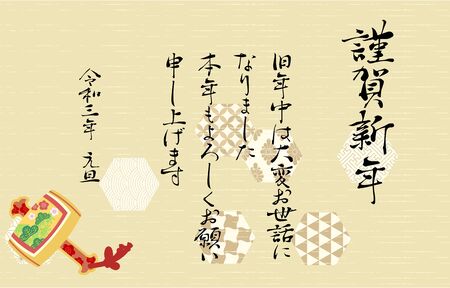 謹賀新年
旧年中は大変お世話に
なりました
本年もよろしくお願い
申し上げます
令和三年 元旦